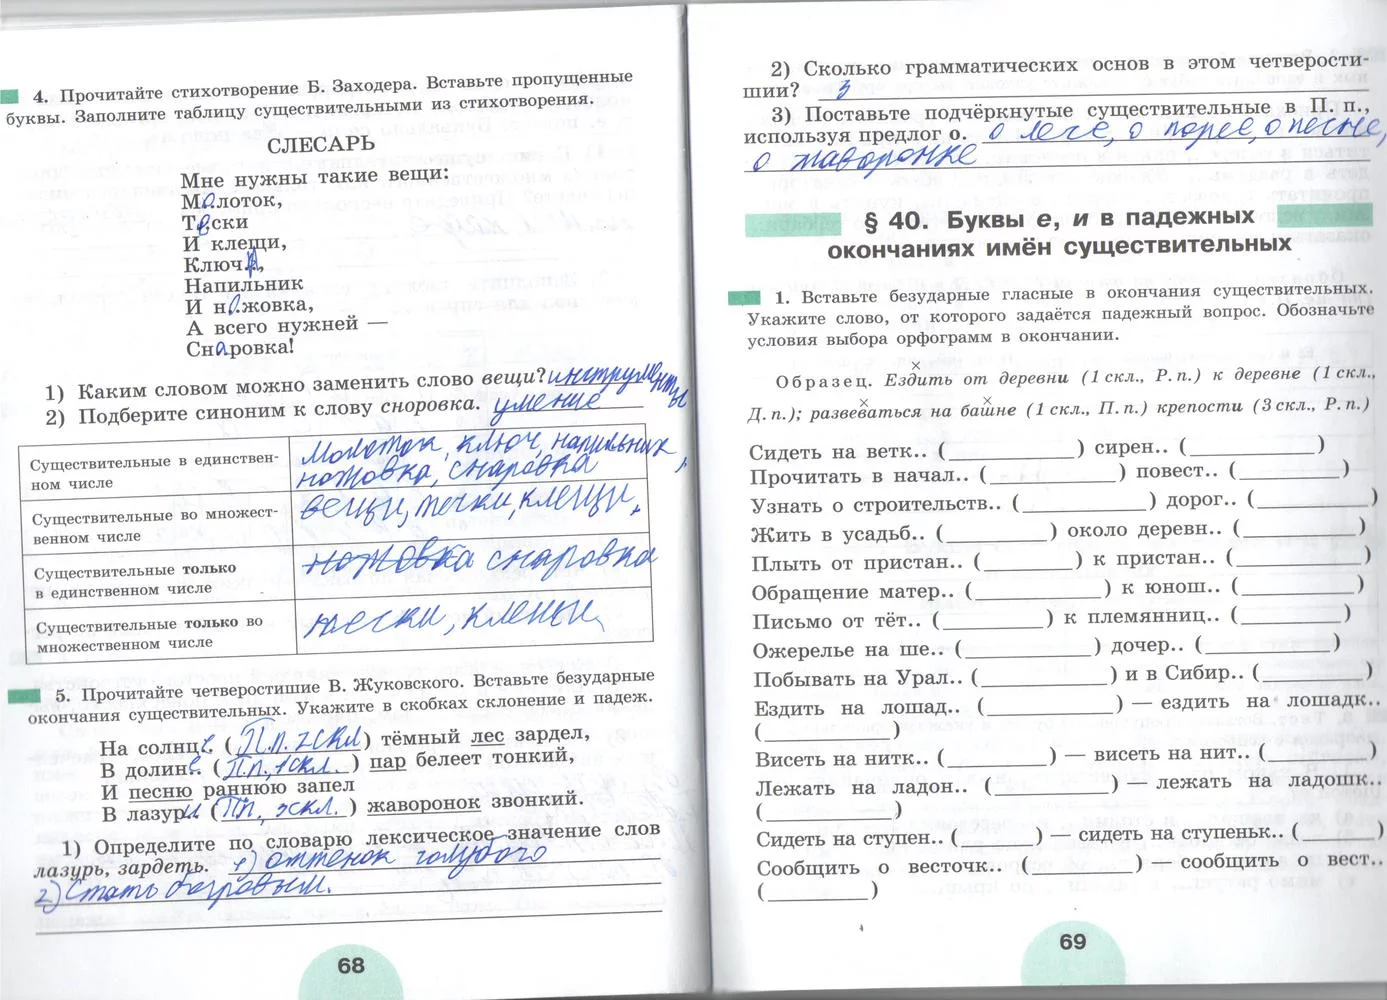 4. Прочитайте стихотворение Б. Заходера. Вставьте пропущенные
буквы. Заполните таблицу существительными из стихотворения.
СЛЕСАРЬ
Мне нужны такие вещи:
Молоток,
Тески
И клещи,
Ключ,
Напильник
И ножовка,
А всего нужней —
Снаровка!
1) Каким словом можно заменить слово вещи? инструменты
2) Подберите синоним к слову сноровка. умение
Существительные в единствен-
ном числе
молоток, ключ, напильник,
ножовка, снаровка
Существительные во множест-
венном числе
вещи, тески, клещи,
Существительные только
в единственном числе
ножовка снаровка
Существительные только во
множественном числе
тески, клещи,
5. Прочитайте четверостишие В. Жуковского. Вставьте безударные
окончания существительных. Укажите в скобках склонение и падеж.
На солнце (П.п. 2скл) тёмный лес зардел,
В долине (П.п. 1скл.) пар белеет тонкий,
И песню раннюю запел
В лазури (П.п., 3скл.) жаворонок звонкий.
1) Определите по словарю лексическое значение слов
лазурь, зардеть. 1) оттенок голубого
2) Стать багровым.
68
2) Сколько грамматических основ в этом четверости-
шии? 3
3) Поставьте подчёркнутые существительные в П. п.,
используя предлог о. о лесе, о паре, о песне,
о жаворонке
§ 40. Буквы е, и в падежных
окончаниях имён существительных
1. Вставьте безударные гласные в окончания существительных.
Укажите слово, от которого задаётся падежный вопрос. Обозначьте
условия выбора орфограмм в окончании.
Образец. Ездить от деревни (1 скл., Р. п.) к деревне (1 скл.,
Д. п.); развеваться на башне (1 скл., П. п.) крепости (3 скл., Р. п.)
Сидеть на ветк.. ( ) сирен.. ( )
Прочитать в начал.. ( ) повест.. ( )
Узнать о строительств.. ( ) дорог.. ( )
Жить в усадьб.. ( ) около деревн.. ( )
Плыть от пристан.. ( ) к пристан.. ( )
Обращение матер.. ( ) к юнош.. ( )
Письмо от тёт.. ( ) к племянниц.. ( )
Ожерелье на ше.. ( ) дочер.. ( )
Побывать на Урал.. ( ) и в Сибир.. ( )
Ездить на лошад.. ( ) — ездить на лошадк..
( )
Висеть на нитк.. ( ) — висеть на нит.. ( )
Лежать на ладон.. ( ) — лежать на ладошк..
( )
Сидеть на ступен.. ( ) — сидеть на ступеньк.. ( )
Сообщить о весточк.. ( ) — сообщить о вест..
( )
69